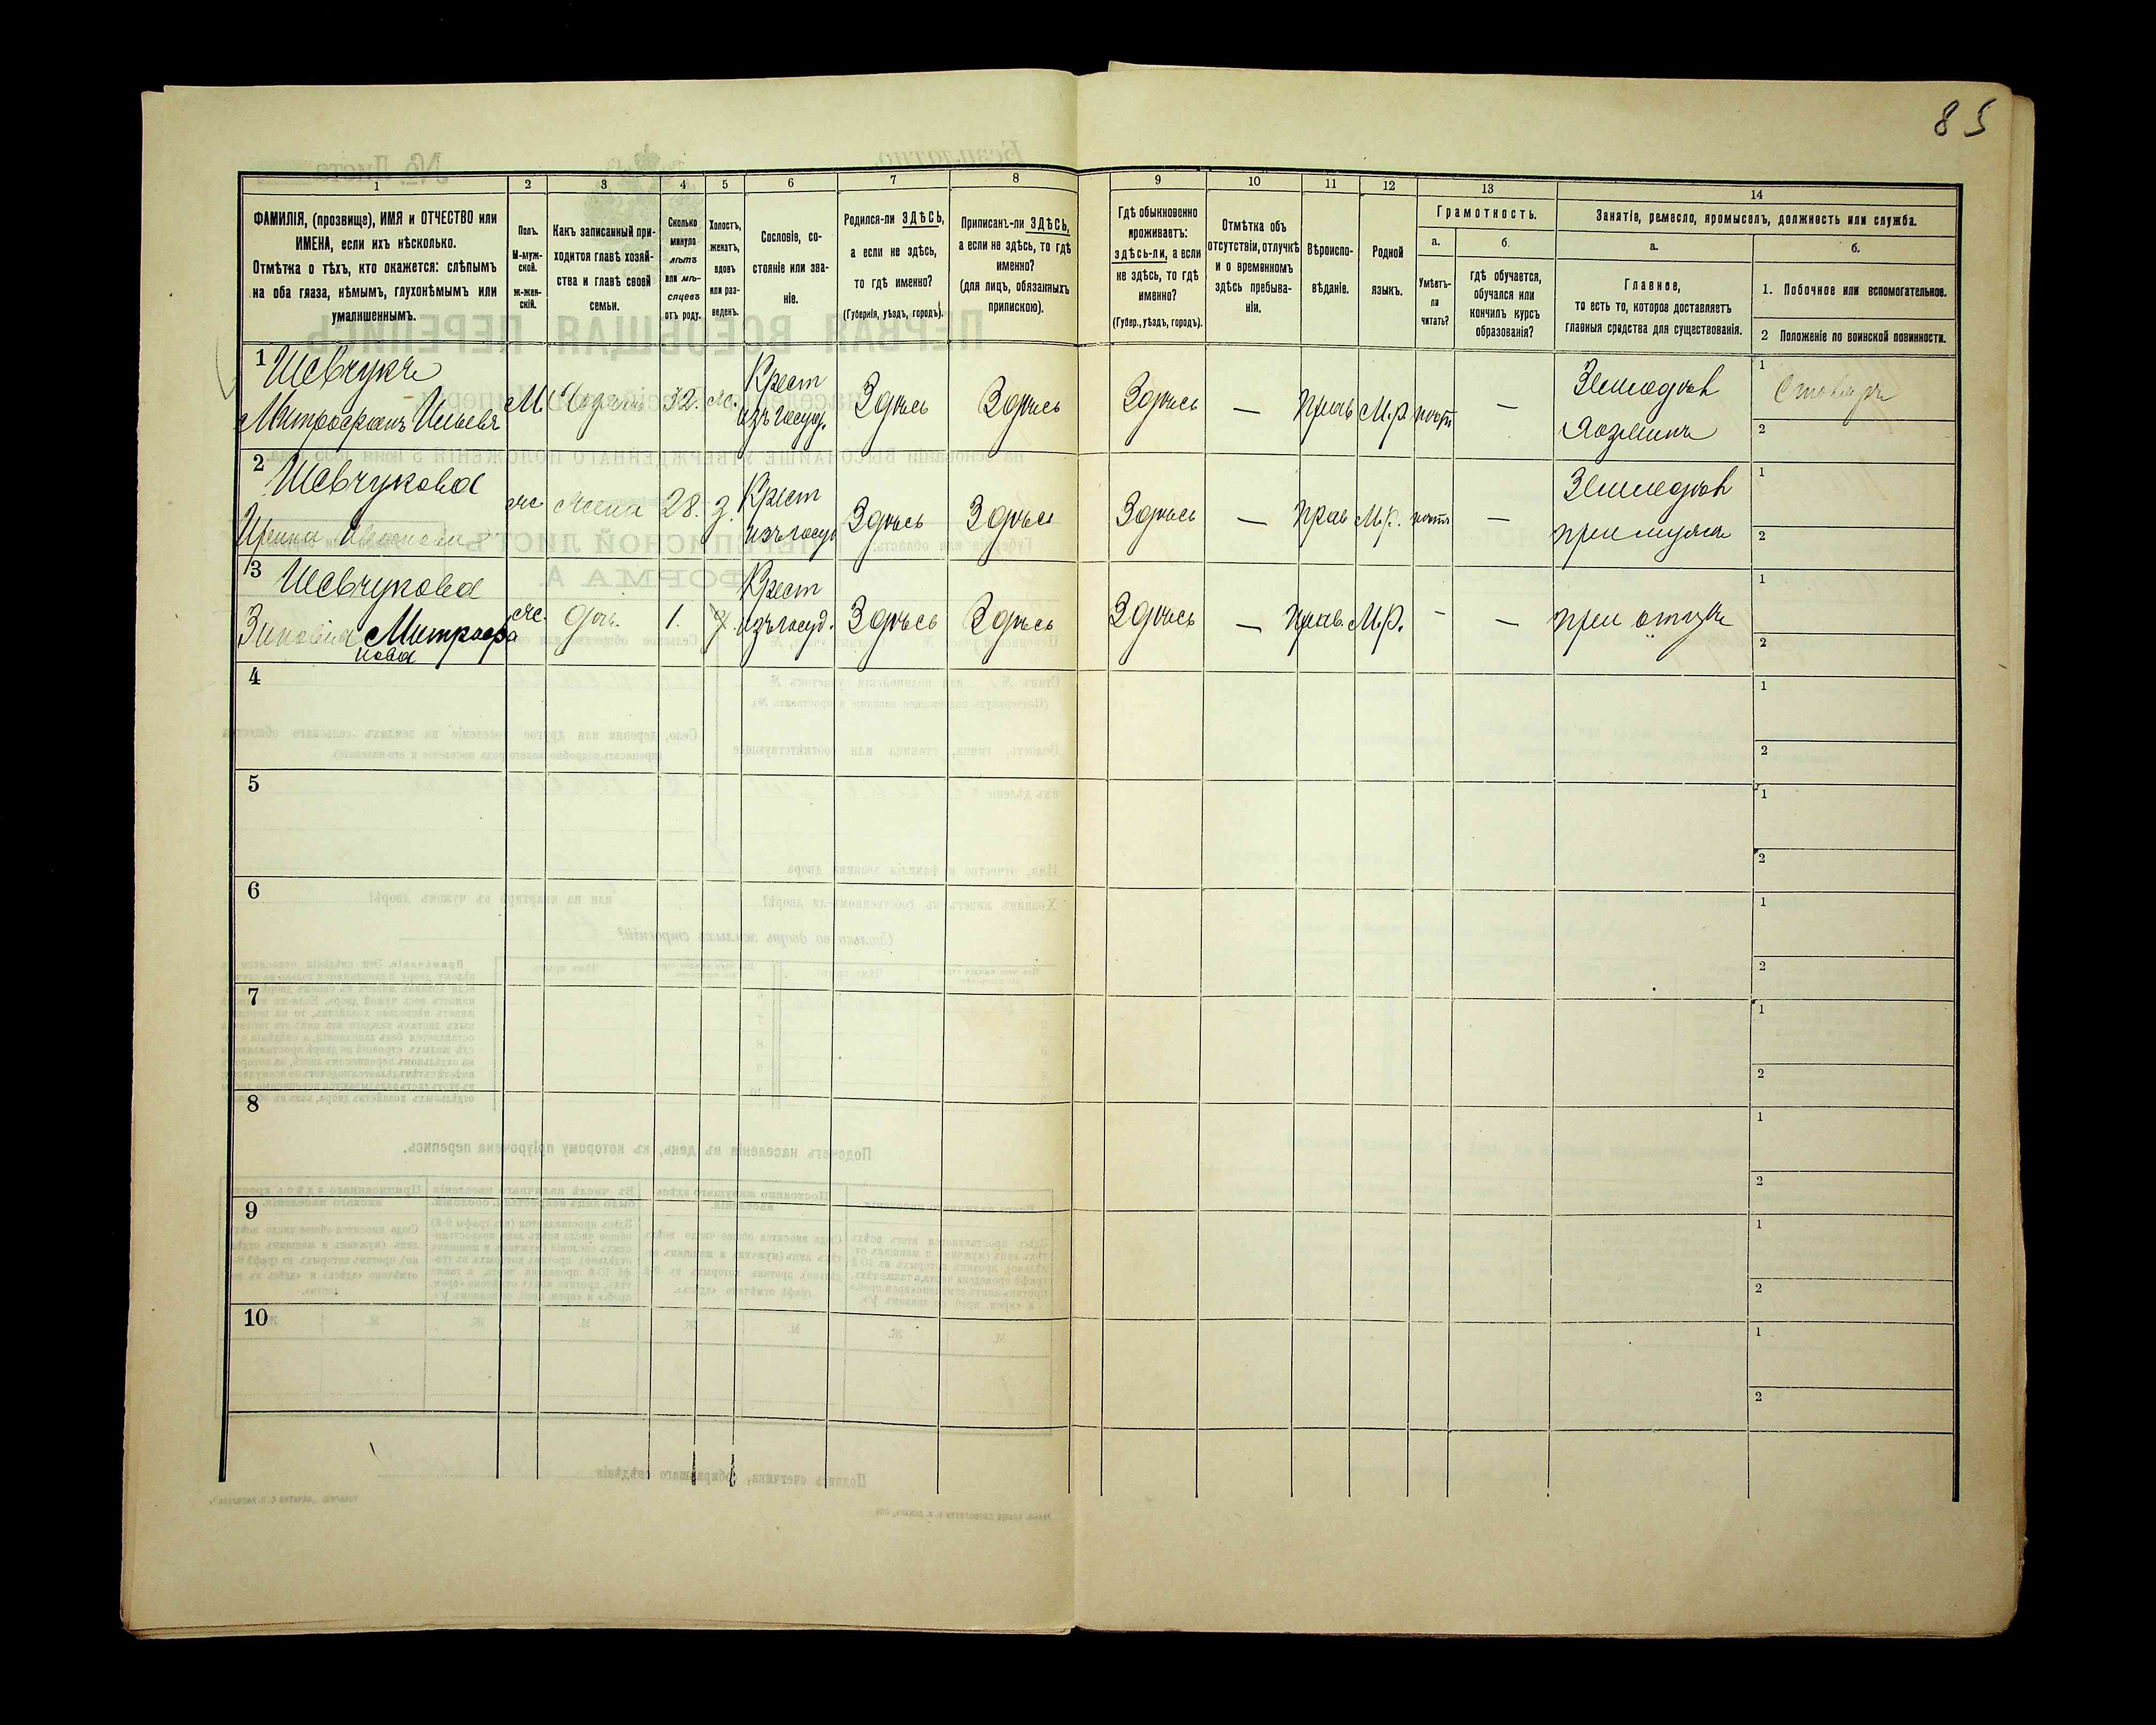 85
1 2 3 4 5 6 7 8 9 10 11 12 13 14
ФАМИЛІЯ, (прозвище), ИМЯ и ОТЧЕСТВО или
ИМЕНА, если ихъ нѣсколько.
Отмѣтка о тѣхъ, кто окажется: слѣпымъ
на оба глаза, нѣмымъ, глухонѣмымъ или
умалишеннымъ.
Полъ.
М-муж-
ской.
ж-жен-
скій.
Какъ записанный при-
ходится главѣ хозяй-
ства и главѣ своей
семьи.
Сколько
минуло
лѣтъ
или мѣ-
сяцевъ
отъ роду.
Холостъ,
женатъ,
вдовъ
или раз-
веденъ.
Сословіе, со-
стояніе или зва-
ніе.
Родился-ли ЗДѢСЬ,
а если не здѣсь,
то гдѣ именно?
(Губернія, уѣздъ, городъ).
Приписанъ-ли ЗДѢСЬ,
а если не здѣсь, то гдѣ
именно?
(для лицъ, обязанныхъ
припискою).
Гдѣ обыкновенно
проживаетъ:
здѣсь-ли, а если
не здѣсь, то гдѣ
именно?
(Губер., уѣздъ, городъ).
Отмѣтка объ
отсутствіи, отлучкѣ
и о временномъ
здѣсь пребыва-
ніи.
Вѣроиспо-
вѣданіе.
Родной
языкъ.
Грамотность.
а.
Умѣетъ-
ли
читать?
б.
гдѣ обучается,
обучался или
кончилъ курсъ
образованія?
Занятіе, ремесло, промыселъ, должность или служба.
а.
Главное,
то есть то, которое доставляетъ
главныя средства для существованія.
б.
1. Побочное или вспомогательное.
2 Положеніе по воинской повинности.
1 Шевчукъ
Митрофанъ Ильевъ
М.
32.
Крест
изъ госуд.
Здѣсь
Здѣсь
Здѣсь
—
Прав
М.р.
—
Земледѣл
хозяинъ
1
Столяръ
2
2 Шевчукова
Ирина
ж
жена
28.
з.
Крест
изъ госуд
Здѣсь
Здѣсь
Здѣсь
—
Прав
М.р.
—
Земледѣл
при мужѣ
1
2
3 Шевчукова
Зиновія Митрофа
нова
ж.
дочь.
1.
Крест
изъ госуд.
Здѣсь
Здѣсь
Здѣсь
—
Прав.
М.р.
-
—
при отцѣ
1
2
4
1
2
5
1
2
6
1
2
7
1
2
8
1
2
9
1
2
10
1
2